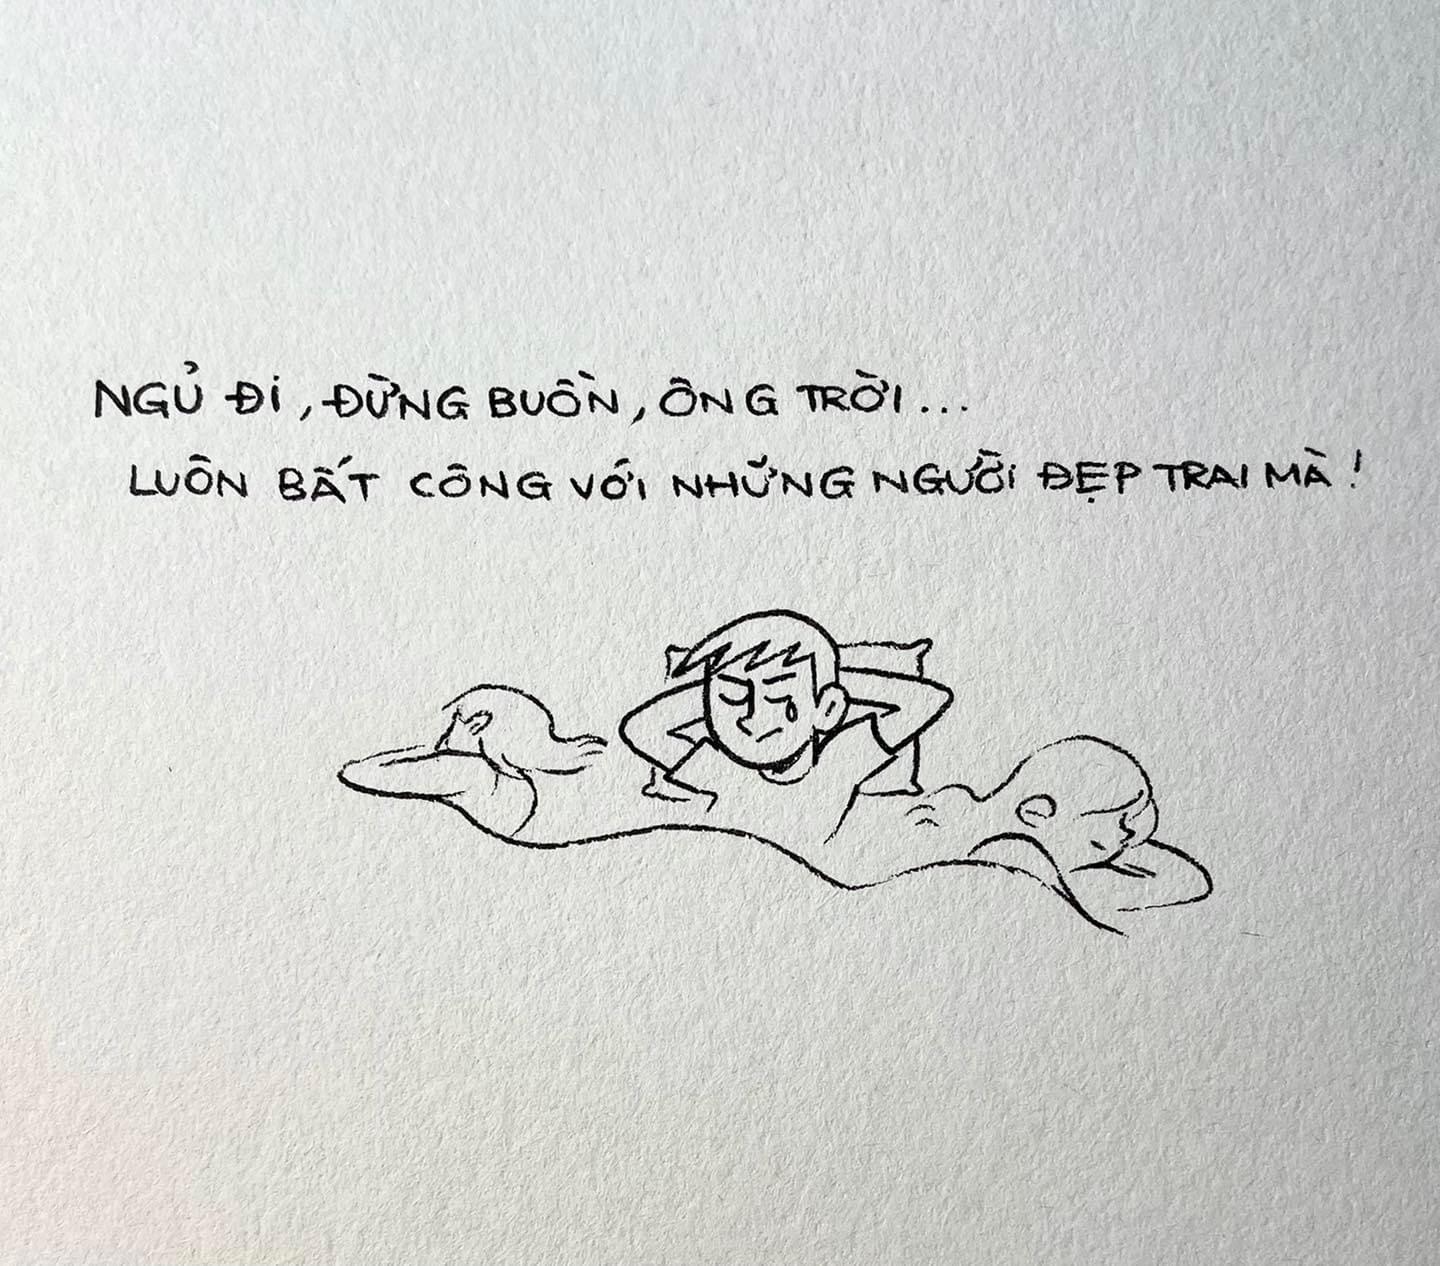 NGỦ ĐI, ĐỪNG BUỒN, ÔNG TRỜI...
LUÔN BẤT CÔNG VỚI NHỮNG NGƯỜI ĐẸP TRAI MÀ!